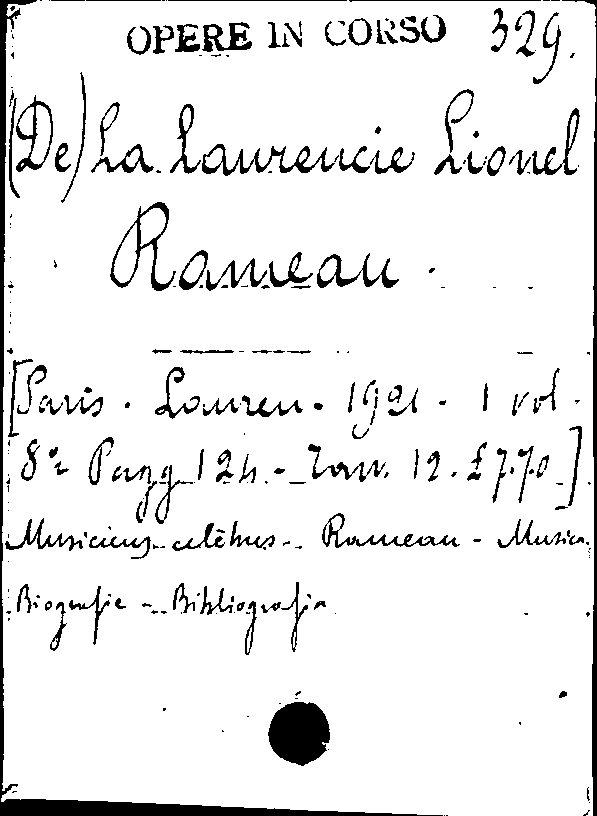 OPERE IN CORSO 329.
(De) La Laurencie Lionel
Rameau.
[Paris. Lauren. 1921. 1 vol.
8° Pagg 124. Tav. 12. £ 7.70.]
Musiciens célèbres. Rameau - Musica
Biografie - Bibliografia